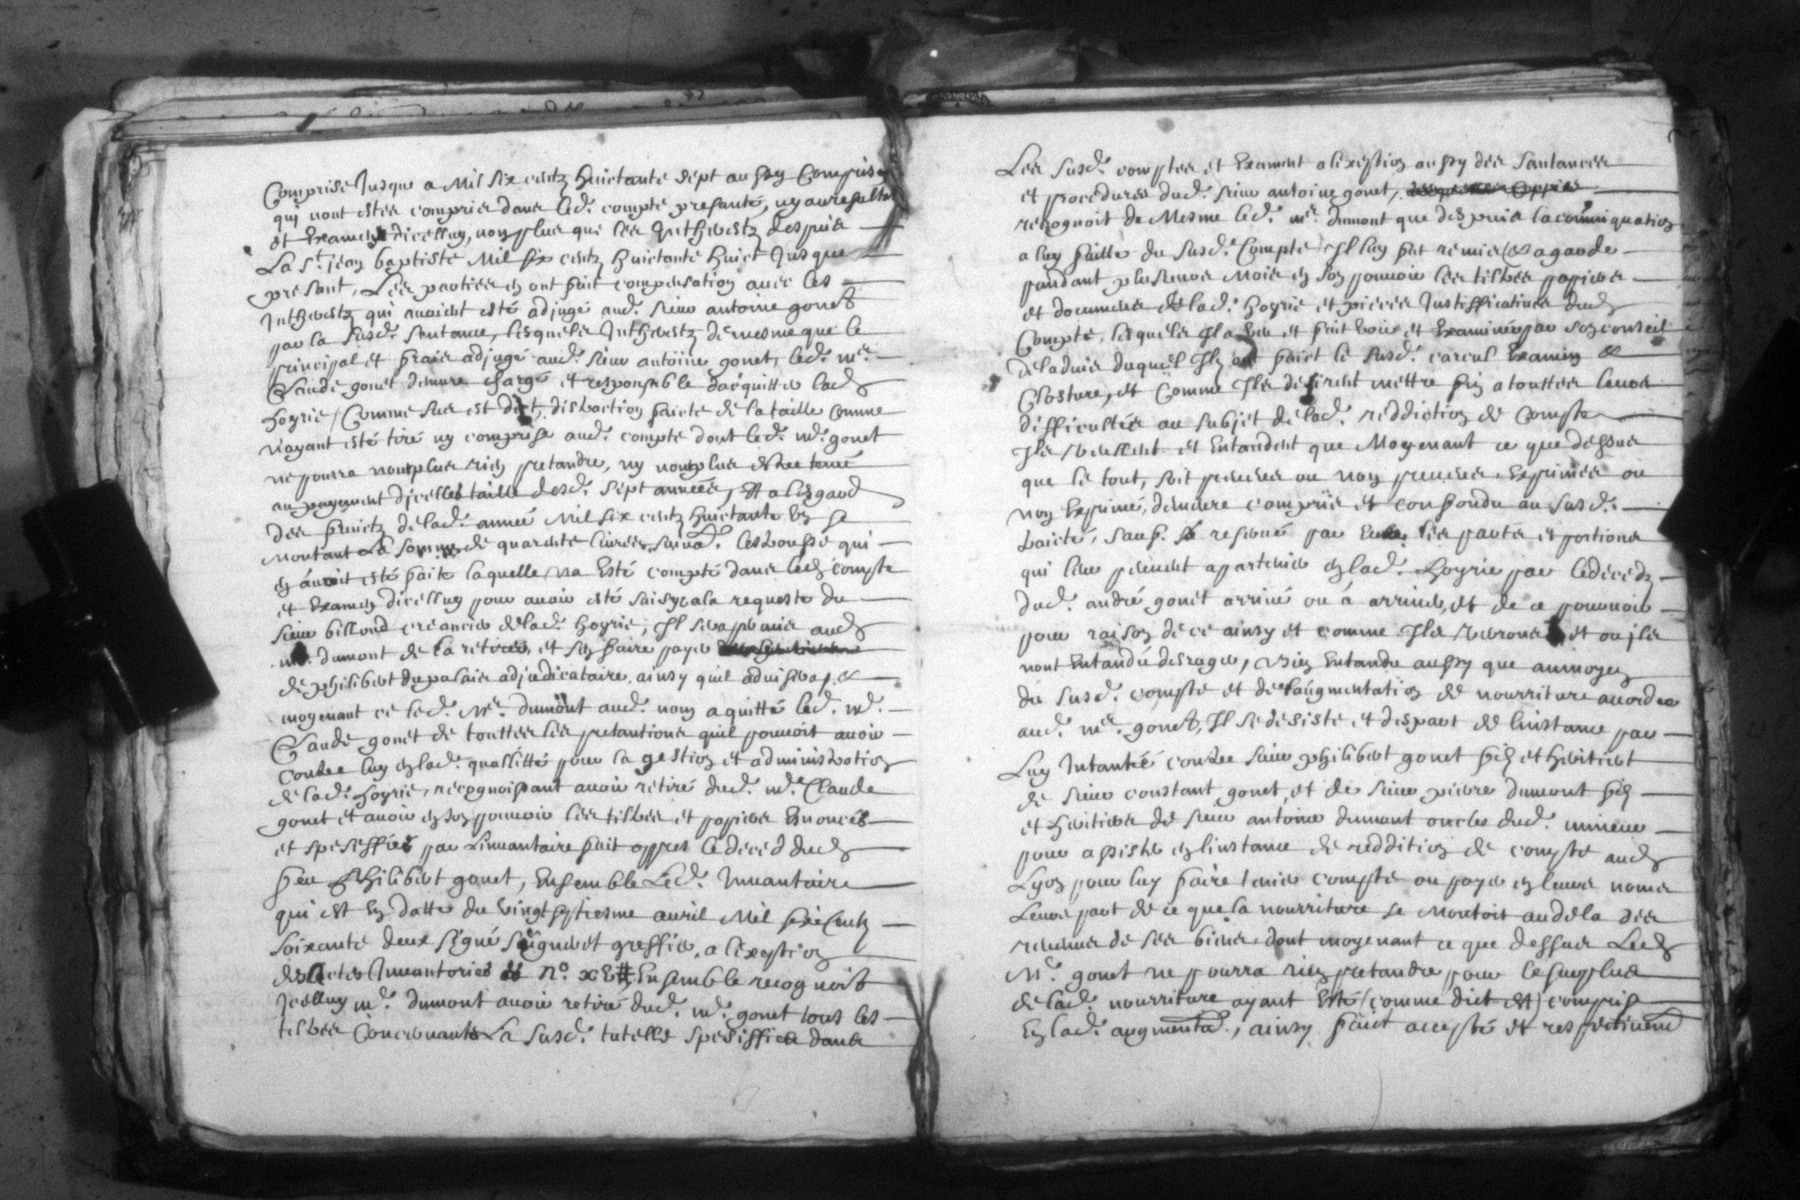 Comprise Jusque a Mil six centz huictante sept aussy Compris
qui nont estés comprises dans led. compte presanté, ny au resultat
et Examen dicelluy, non plus que les Inthérestz despuis
La St. jean baptiste Mil six centz huictante huict Jusque
presant, Les parties en ont fait compensation avec les
Intherestz qui avoient esté adjugé aud. sieur antoine gonet
par la susd. sentance, lesquels Intherestz de mesme que le
principal et frais adjugé aud. sieur antoine gonet, led. mr.
Claude gonet demure chargé et responsable d'acquitter lad.
hoyrie / Comme sus est dict, distraction faicte de la taille comme
n'ayant esté tiré ny comprise aud. compte dont led. mr. gonet
ne pourra nonplus rien pretandre, ny nonplus estre tenu
au payement dicelles taille desd. sept années, Et a lesgard
des fruictz de lad. année Mil six centz huictante un se
montant La somme de quarente livres, suivd. lestrousse qui
en avoit esté faite laquelle na Esté compté dans led. compte
et Examen dicelluy pour avoir esté saisy a la requeste du
sieur billoud creancier de lad. hoyrie, Il sera permis aud.
mr. dumont de la retirer, et sen faire payer
de philibert dupalais adjudicataire, ainsy quil advisera, et
moyenant ce led. Mr. dumont aud. nom a quitté led. Mr.
Claude gonet de touttes les pretantions quil pouvoit avoir
Contre luy en lad. quallitté pour la gestion et administration
de lad. hoyrie, recognoissant avoir retiré dud. mr. Claude
gonet et avoir en son pouvoir les tiltres et papiers Enoncés
et speseffiés par Linvantaire fait appres le deced dud.
feu Philibert gonet, Ensemble Led. Invantaire
qui est En datte du vingt septiesme avril Mil six Centz
soixante deux signé greffier, a lexeption
des actes Invantoriés No. Ensemble recognoist
Icelluy mr. dumont avoir retiré dud. mr. gonet tous les
tiltres Concernants La susd. tutelle speciffiés dans
Les susd. comptes et Exament a lexeption aussy des santances
et procedures dud. sieur antoine gonet,
recognoit de Mesme led. mr. dumont que despuis la comuniquation
a luy faitte du susd. Compte, Il luy fut remis et a gardé
pandant plusieurs Mois en son pouvoir les tiltres papiers
et documens de lad. hoyrie et pieces Justifficatives dud.
Compte, lesquels Il a veu et fait voir et Examiner par son conseil
de ladvis duquel Ilz ont faict le susd. carcul Examen et
Closture, et Comme Ils desirent mettre fin a touttes leurs
difficultés au subjet de lad. reddiction de Compte
Ils Veullent et Entandent que Moyenant ce que dessus
que le tout, soit preveu ou non preveu Exprimés ou
non Exprimé, demure compris et confondu au susd.
traicté, sauf et reservé par Eux les parts et portions
qui leur peuvent apartenir en lad. hoyrie par le decedz
dud. andré gonet arrivé ou à arriver, et de ce pouvoir
pour raison de ce ainsy et comme Ils Verront et ou ils
nont Entandu desroger, bien Entandu aussy que aumoyen
du susd. compte et de laugmentation de nourriture accordée
aud. mr. gonet, Il se desiste et despart de linstance par
Luy Intantée contre sieur philibert gonet fils et heritier
de sieur constant gonet, et de sieur pierre dumont fils
et heritier de sieur antoine dumont oncles dud. mineur
pour assister en linstance de reddition de compte aud.
Lyon pour luy faire tenir compte ou payer en leurs noms
Leurs part de ce que la nourriture se Montoit audela des
revenus de ses biens, dont moyenant ce que dessus Led.
Mr. gonet ne pourra rien pretandre pour le surplus
de lad. nourriture ayant Esté (comme dict est) compris
En lad. augmenta., ainsy faict accepté et respectivemt